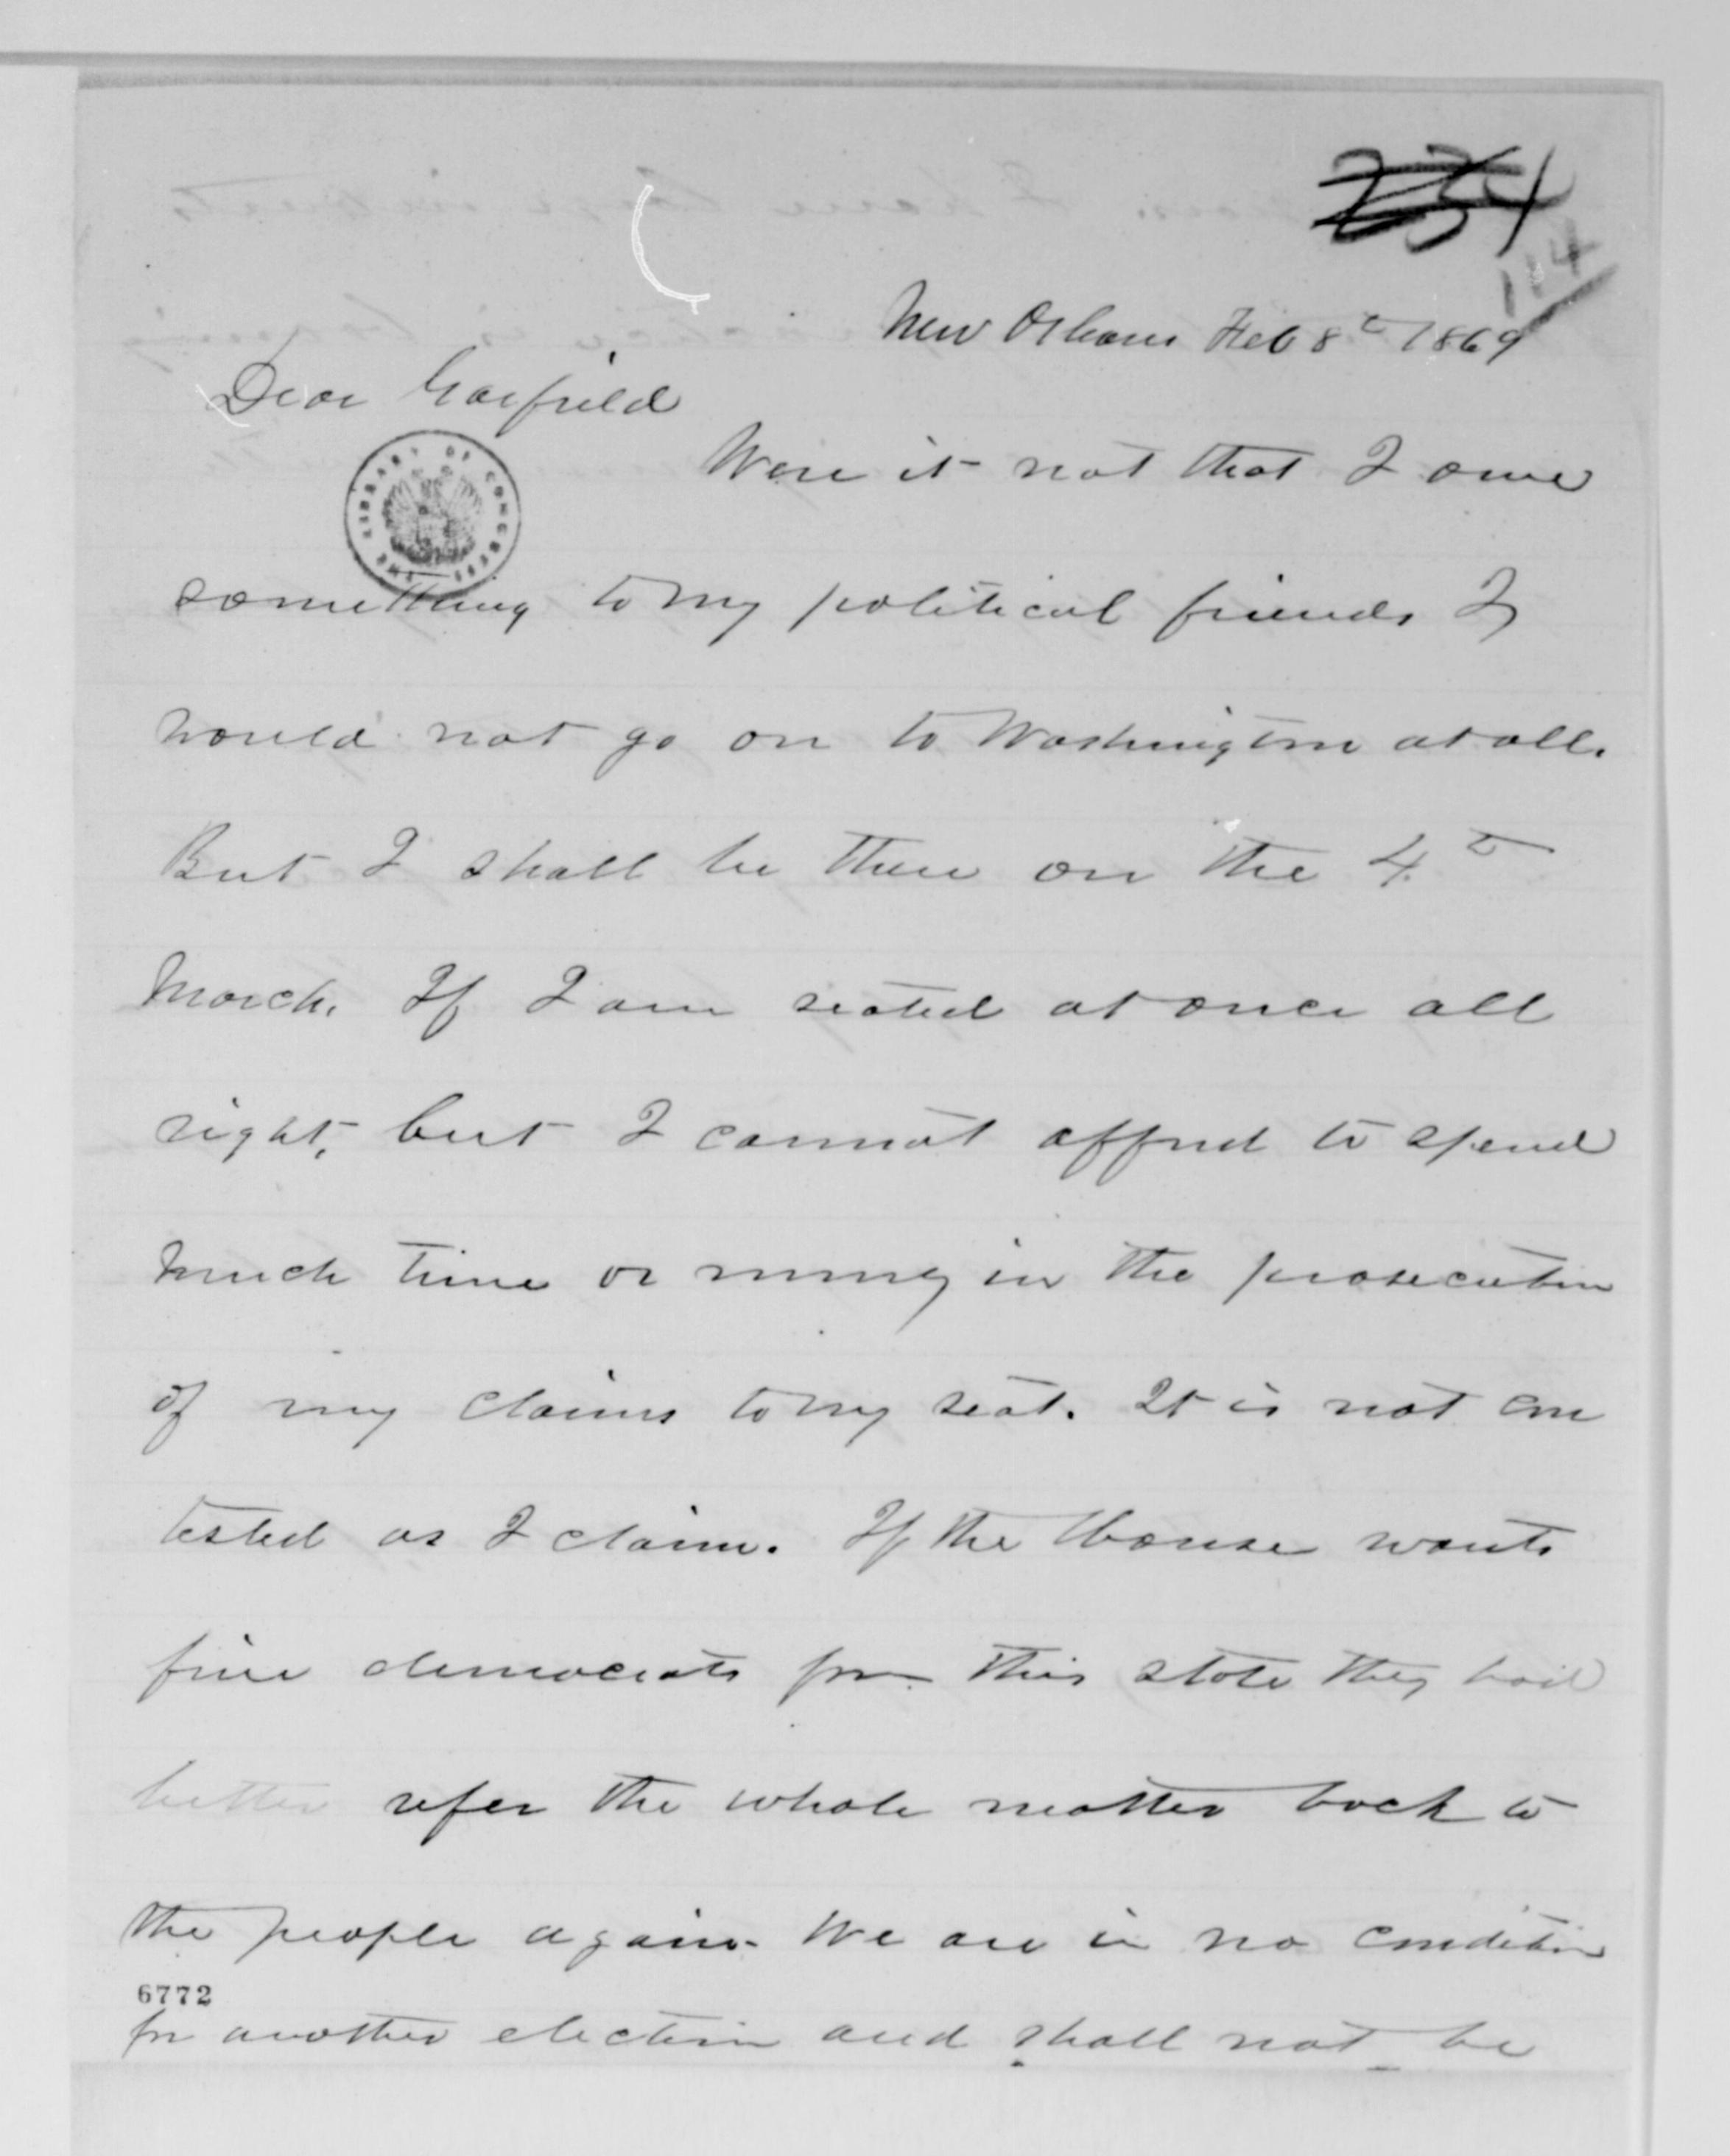 254
114
New Orleans Feb 8th 1869
Dear Garfield
THE LIBRARY OF CONGRESS
Were it not that I owe
something to my political friends I
would not go on to Washington at all.
But I shall be there on the 4th
March. If I am seated at once all
right, but I cannot afford to spend
much time or money in the prosecution
of my claims to my seat. It is not con
tested as I claim. If the House wants
five democrats from this state they had
better refer the whole matter back to
the people again. We are in no condition
6772
for another election and shall not be